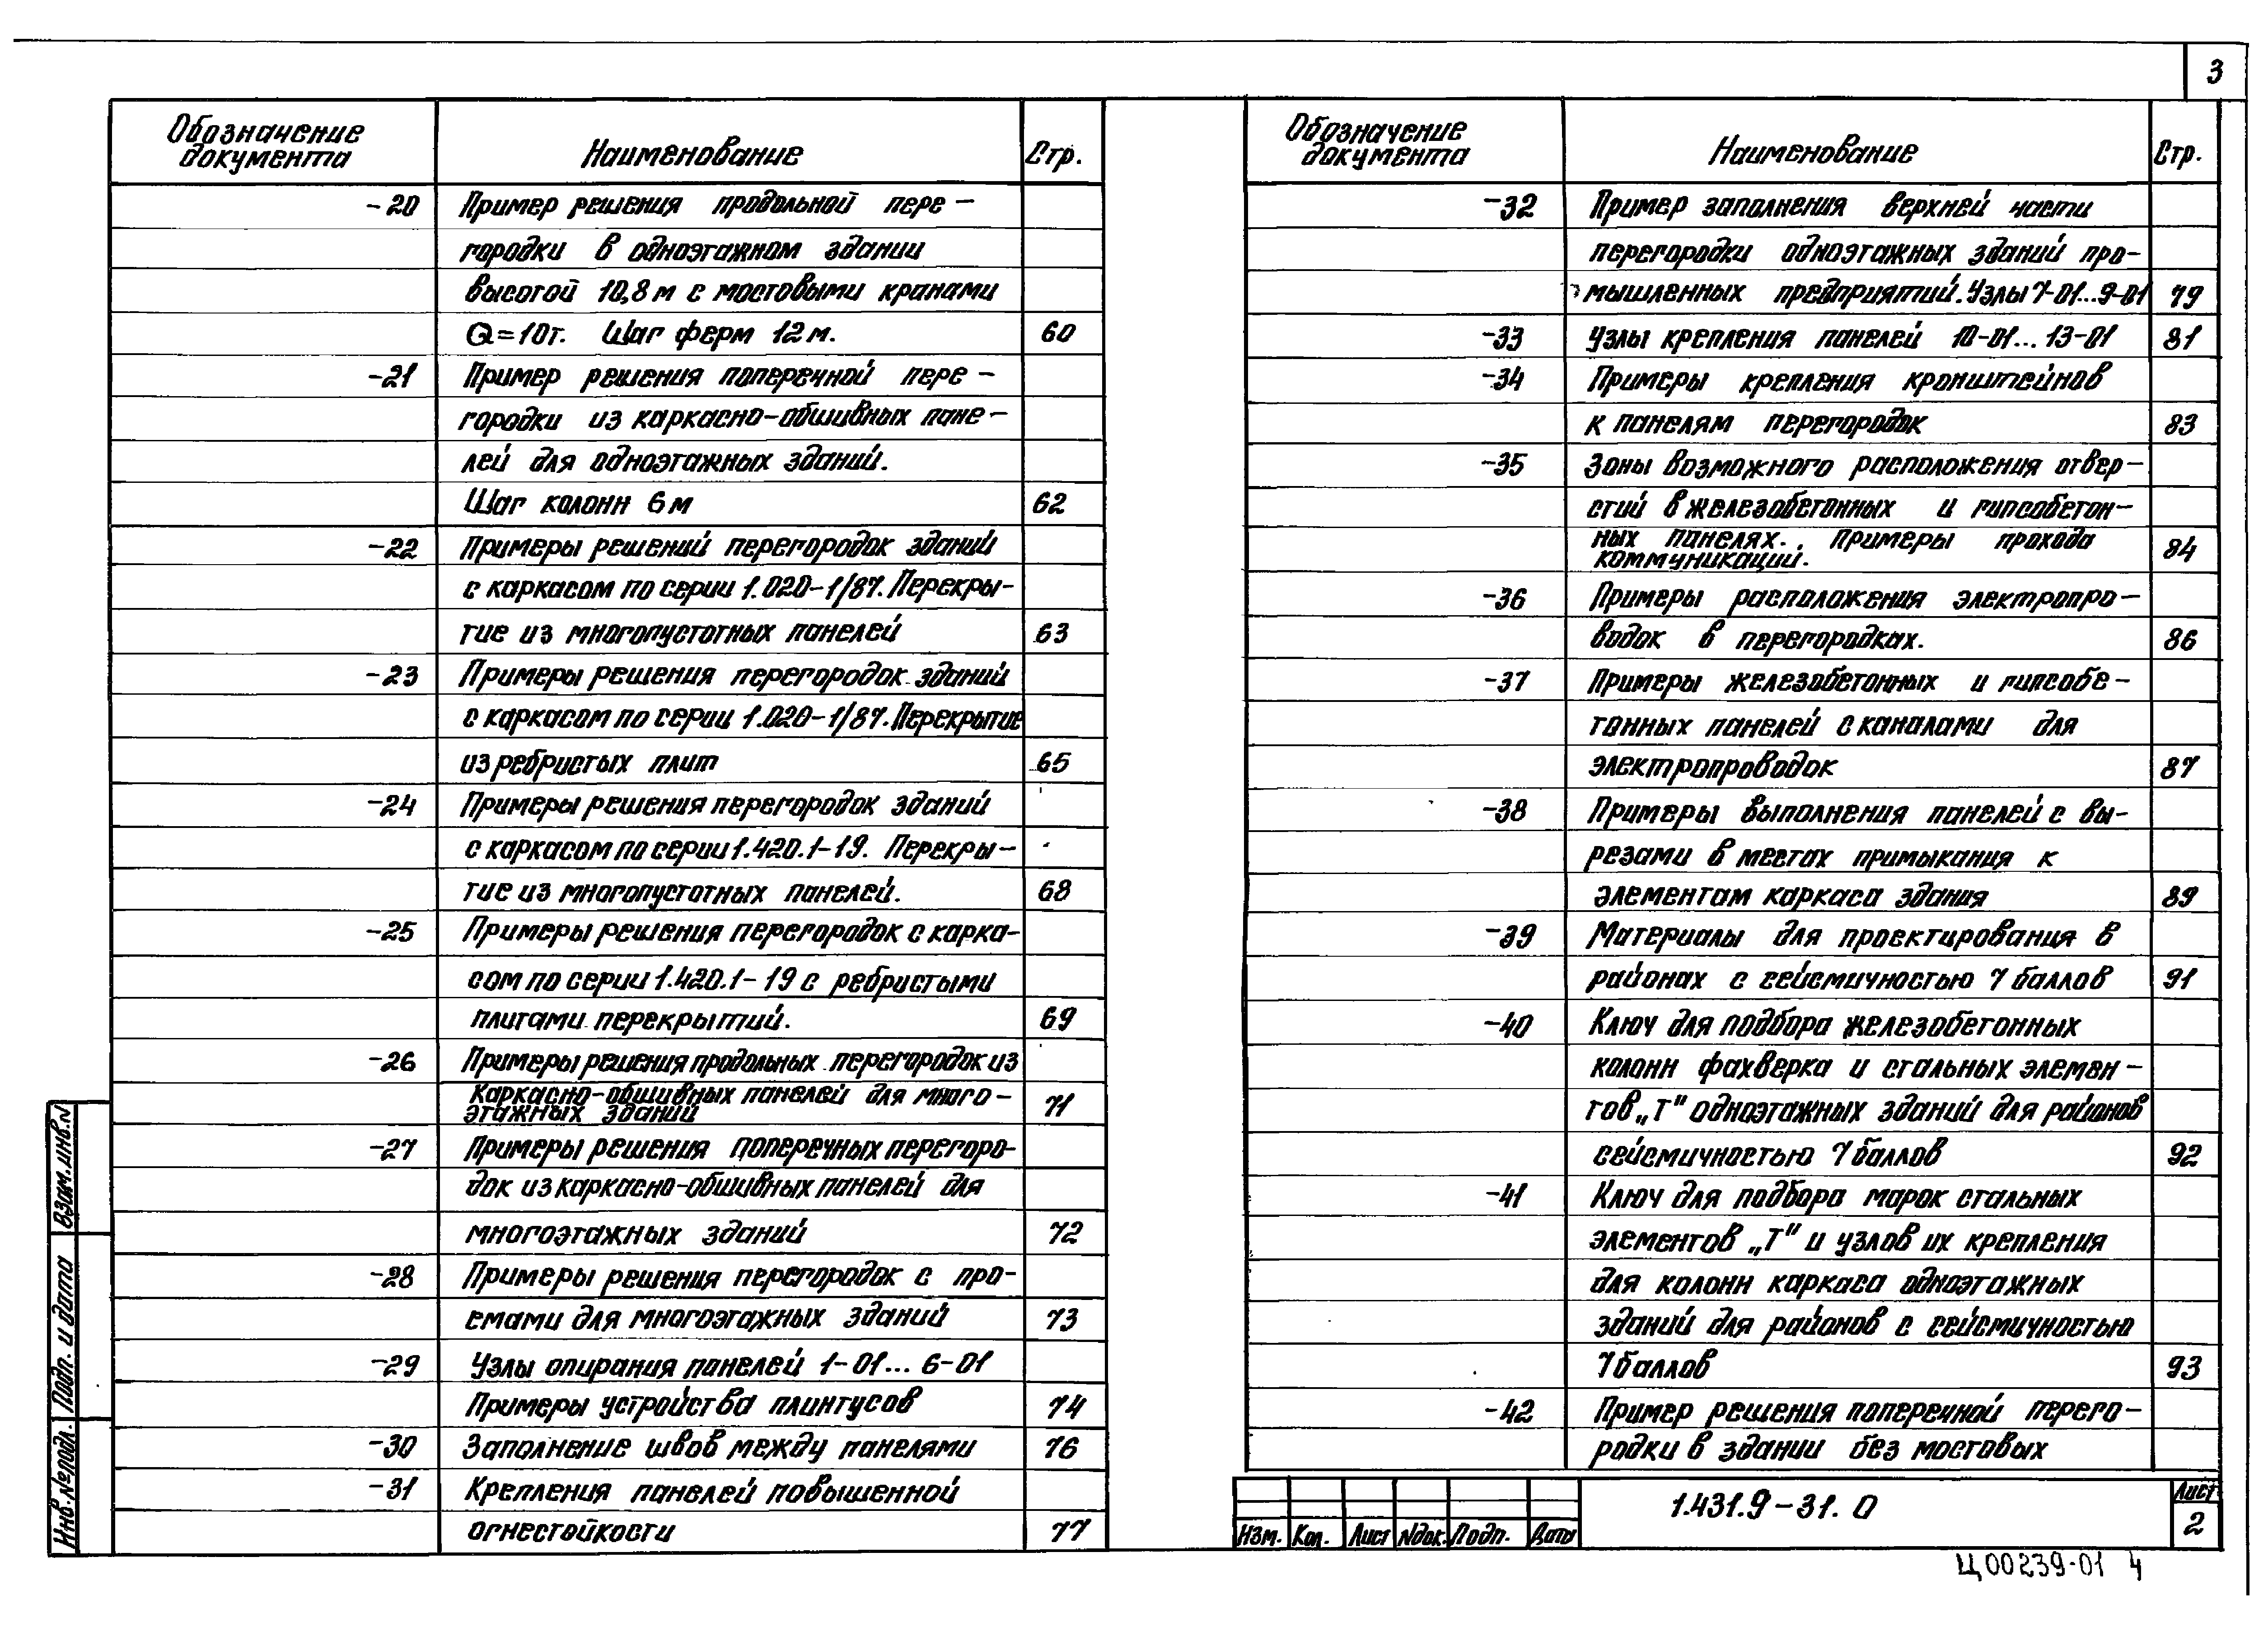 3
Обозначение
документа
Наименование
Стр.
-20 Пример решения продольной пере-
городки в одноэтажном здании
высотой 10,8 м с мостовыми кранами
Q=10т. Шаг ферм 12 м. 60
-21 Пример решения поперечной пере-
городки из каркасно-обшивных пане-
лей для одноэтажных зданий.
Шаг колонн 6 м 62
-22 Примеры решений перегородок зданий
с каркасом по серии 1.020-1/87. Перекры-
тие из многопустотных панелей 63
-23 Примеры решения перегородок зданий
с каркасом по серии 1.020-1/87. Перекрытие
из ребристых плит 65
-24 Примеры решения перегородок зданий
с каркасом по серии 1.420.1-19. Перекры-
тие из многопустотных панелей. 68
-25 Примеры решения перегородок с карка-
сом по серии 1.420.1-19 с ребристыми
плитами перекрытий. 69
-26 Примеры решения продольных перегородок из
каркасно-обшивных панелей для много-
этажных зданий 71
-27 Примеры решения поперечных перегоро-
док из каркасно-обшивных панелей для
многоэтажных зданий 72
-28 Примеры решения перегородок с про-
емами для многоэтажных зданий 73
-29 Узлы опирания панелей 1-01... 6-01
Примеры устройства плинтусов 74
-30 Заполнение швов между панелями 76
-31 Крепления панелей повышенной
огнестойкости 77
Обозначение
документа
Наименование
Стр.
-32 Пример заполнения верхней части
перегородки одноэтажных зданий про-
мышленных предприятий. Узлы 7-01...9-01 79
-33 Узлы крепления панелей 10-01... 13-01 81
-34 Примеры крепления кронштейнов
к панелям перегородок 83
-35 Зоны возможного расположения отвер-
стий в железобетонных и гипсобетон-
ных панелях. Примеры прохода
коммуникаций. 84
-36 Примеры расположения электропро-
водок в перегородках. 86
-37 Примеры железобетонных и гипсобе-
тонных панелей с каналами для
электропроводок 87
-38 Примеры выполнения панелей с вы-
резами в местах примыкания к
элементам каркаса здания 89
-39 Материалы для проектирования в
районах с сейсмичностью 7 баллов 91
-40 Ключ для подбора железобетонных
колонн фахверка и стальных элемен-
тов „Т" одноэтажных зданий для районов
сейсмичностью 7 баллов 92
-41 Ключ для подбора марок стальных
элементов „Т" и узлов их крепления
для колонн каркаса одноэтажных
зданий для районов с сейсмичностью
7 баллов 93
-42 Пример решения поперечной перего-
родки в здании без мостовых
Взам.инв.N
Подп. и дата
Инв.№подл.
Изм. Кол. Лист Nдок. Подп. Дата
1.431.9-31.0
Лист
2
Ц00239-01 4